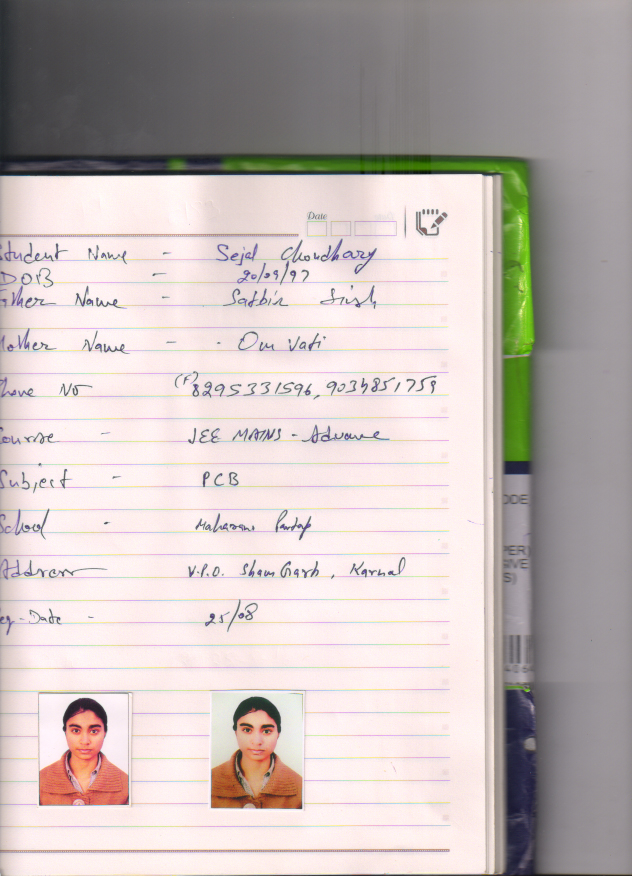 Date
Student Name - Sejal Choudhary
DOB - 20/09/97
Father Name - Satbir Singh
Mother Name - - Om Vati
Phone No (F) 8295331596, 9034851759
Course - JEE MAINS - Advance
Subject - PCB
School - Maharana Partap
Address V.P.O. Sham Garh, Karnal
Reg-Date - 25/08
ODE
PER)
GIVE
S)
4064